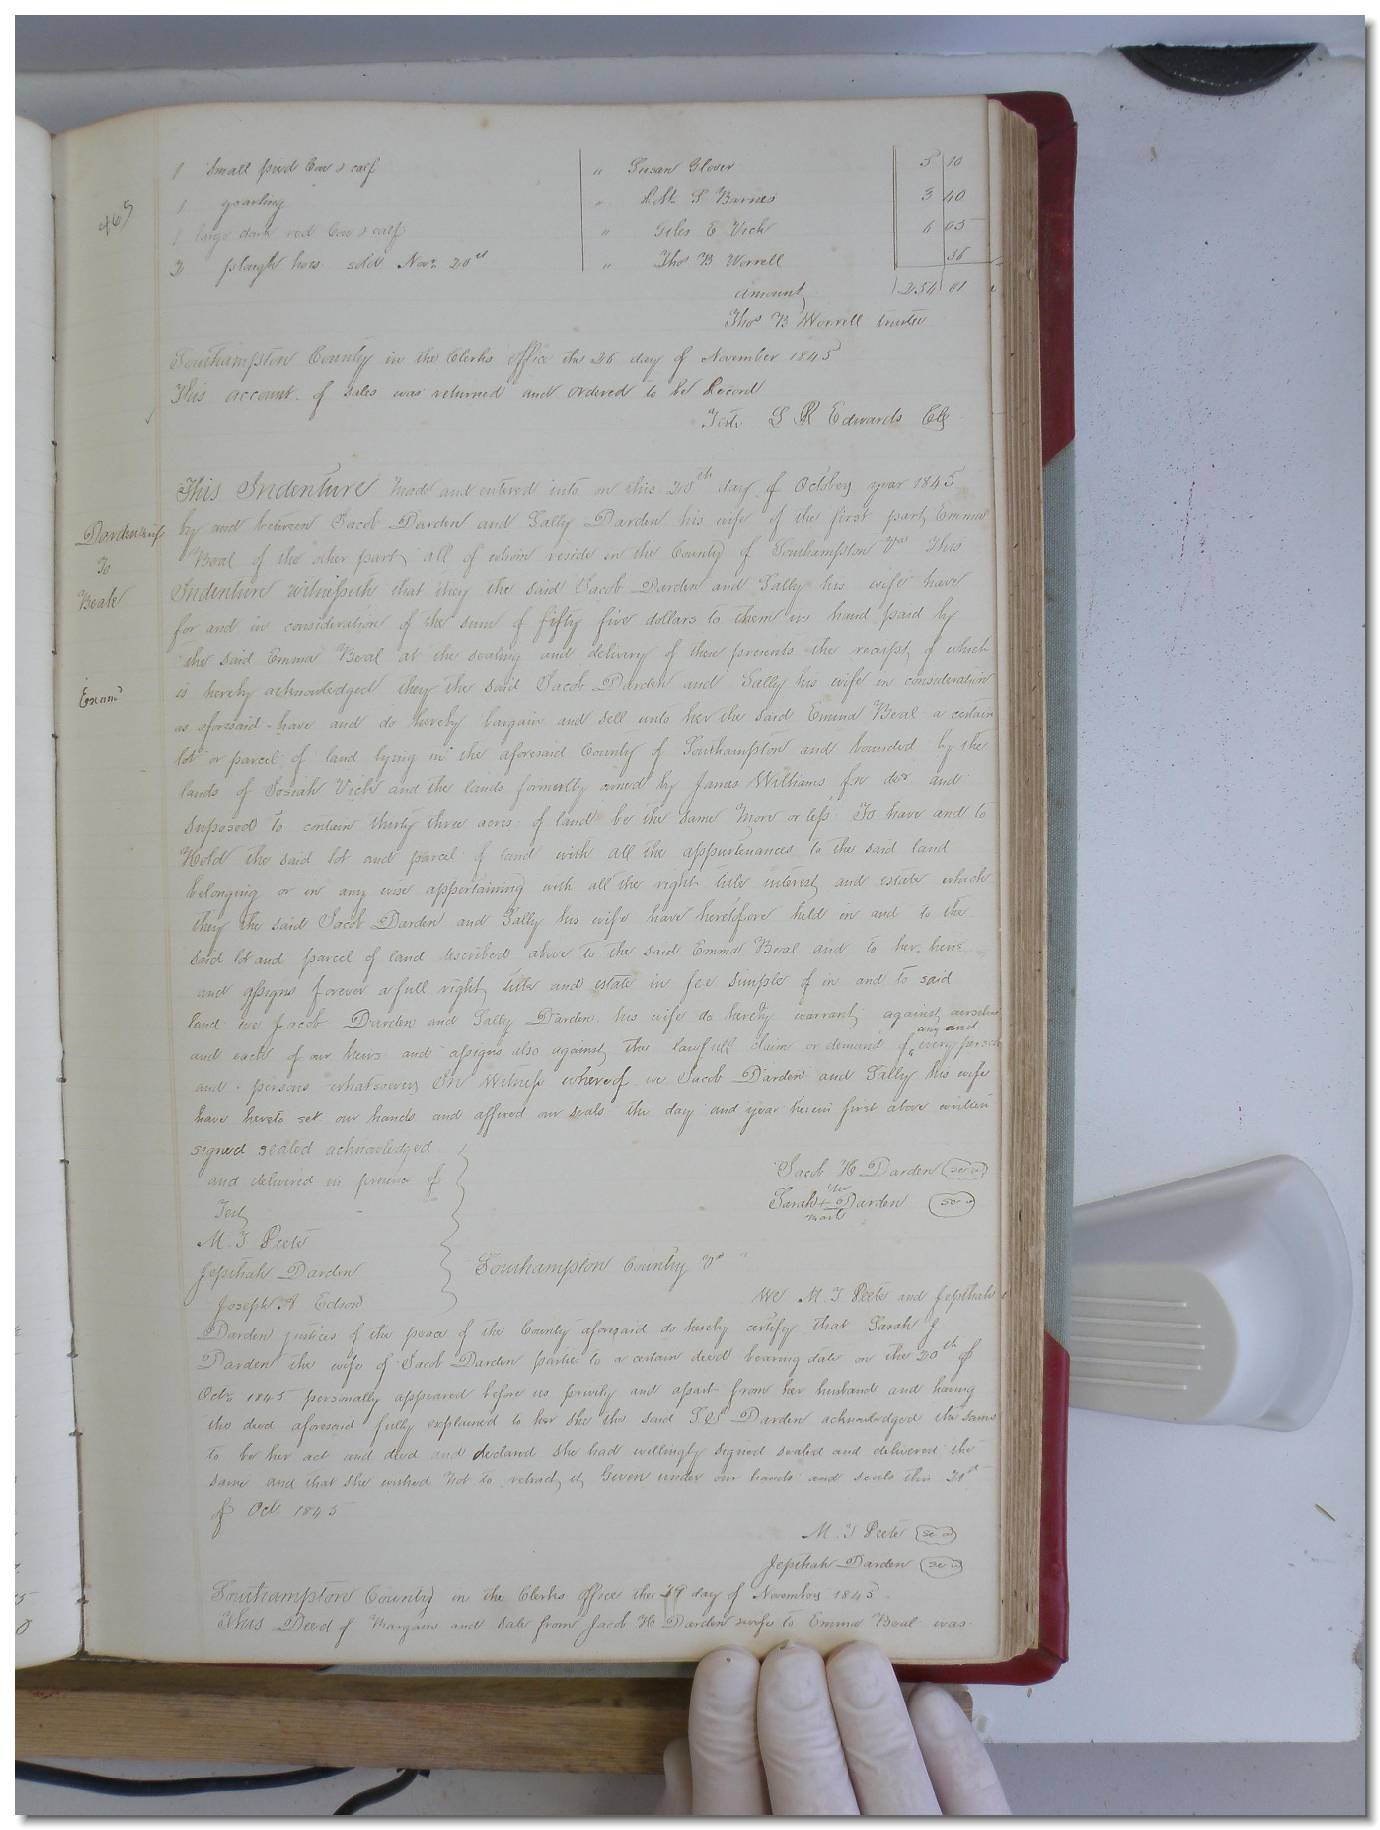 1 Small pied Cow & calf " Susan Glover 5 10
469
1 yearling " S Barnes 3 40
1 large dark red Cow & calf " Giles E Vick 6 05
2 plough hoes sold Novr 20th " Thos B Worrell 36
amount 254 81
Thos B Worrell trustee
Southampton County in the Clerks office the 26 day of November 1845
This account of sales was returned and ordered to be Record
Teste L R Edwards Clk
This Indenture Made and entered into on this 20th day of October year 1845
Darden & wife
To
Beale
Examd
by and between Jacob Darden and Sally Darden his wife of the first part Emma
Beal of the other part all of whom reside in the County of Southampton Va This
Indenture witnesseth that they the said Jacob Darden and Sally his wife have
for and in consideration of the sum of fifty five dollars to them in hand paid by
the said Emma Beal at the sealing and delivery of these presents the receipt of which
is hereby acknowledged they the said Jacob Darden and Sally his wife in consideration
as aforesaid have and do hereby bargain and sell unto her the said Emma Beal a certain
lot or parcel of land lying in the aforesaid County of Southampton and bounded by the
lands of Josiah Vick and the lands formerly owned by James Williams and
supposed to contain thirty three acres of land be the same More or less To have and to
Hold the said lot and parcel of land with all the appurtenances to the said land
belonging or in any wise appertaining with all the right title interest and estate which
they the said Jacob Darden and Sally his wife have heretofore held in and to the
said lot and parcel of land described above to the said Emma Beal and to her heirs
and assigns forever a full right title and estate in fee simple of in and to said
land we Jacob Darden and Sally Darden his wife do hereby warrant against ourselves
and each of our heirs and assigns also against the lawfull claim or demand of any and every person
and persons whatsoever In Witness whereof we Jacob Darden and Sally his wife
have hereto set our hands and affixed our seals the day and year herein first above written
signed sealed acknowledged
and delivered in presence of
Jacob H Darden (seal)
her
Sarah + Darden (seal)
mark
Test
M. T Peete
Jepthah Darden
Joseph A Edson
Southampton County Va
We M. T Peete and Jepthah
Darden justices of the peace of the County aforesaid do hereby certify that Sarah
Darden the wife of Jacob Darden partie to a certain deed bearing date on the 20th of
Octr 1845 personally appeared before us privily and apart from her husband and having
the deed aforesaid fully explained to her she the said Darden acknowledged the same
to be her act and deed and declared she had willingly signed sealed and delivered the
same and that she wished not to retract it Given under our hands and seals this
of Oct 1845
M. T Peete (seal)
Jepthah Darden (seal)
Southampton County in the Clerks Office the 29 day of November 1845
This Deed of Bargain and Sale from Jacob H Darden & wife to Emma Beal was